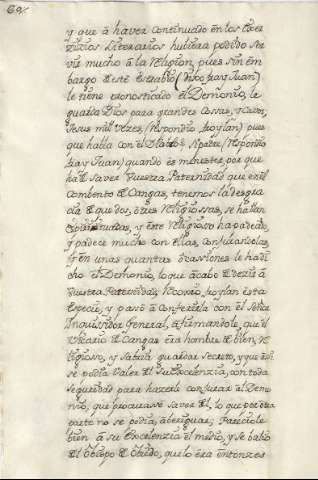 y que á haver continuado en los Exer
zizios Literarios hubiera podido ser
vir mucho á la Religion, pues sin em
bargo de este estrabio (dijo fray Juan)
le tiene pronosticado el Demonio, le
guarda Dios para grandes cossas, y
Jesus mil vezes, (respondio froylan) pues
que habla con el Diablo? Si padre, (respondio
fray Juan) quando es menester, por que
ha de saver Vuestra Paternidad que en el
combento de Cangas, tenemos la desgra
cia de que dos, ó tres Religiossas, se hallan
y este Religioso ha padecido,
y padece mucho con ellas, conjurandolas,
y en unas quantas ocassiones le ha di
cho el Demonio, lo que acabo de dezir á
Vuestra Paternidad, froylan esta
Especie, y passó á conferirla con el Señor
Inquisidor General, afirmandole, que el
Vicario de Cangas era hombre de bien, Re
ligiosso, y sabria guardar secreto, y que assi
se podia valer de él su Excelenzia, con toda
seguridad para hazerle conjurar al Demo
nio, que procurasse saver de él, lo que por otra
parte no se podia, aberiguar; Pareciole
bien á su Excelenzia el medio, y se balio
del Obispo de Obiedo, que lo era entonzes